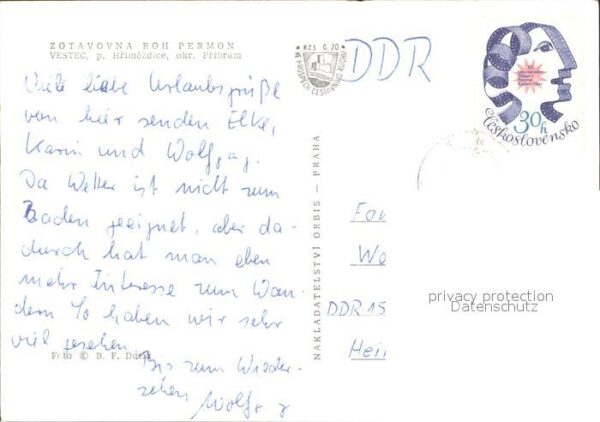 ZOTAVOVNA ROH PERMON
VESTEC, p. Hřiměždice, okr. Příbram
Viele liebe Urlaubsgrüße
von hier senden Elke,
Karin und Wolfgang.
Da Wetter ist nicht zum
Baden geeignet, aber da-
durch hat man eben
mehr Interesse zum Wan-
dern. So haben wir sehr
viel gesehen.
Foto © B. F.
Bis zum Wieder-
sehen
Wolfg
Kčs 0,20
VE PROSPĚCH CESTOVNÍHO RUCHU
NAKLADATELSTVÍ ORBIS — PRAHA
DDR
30h
Československo
Fam
We
DDR 15
Hein
privacy protection
Datenschutz